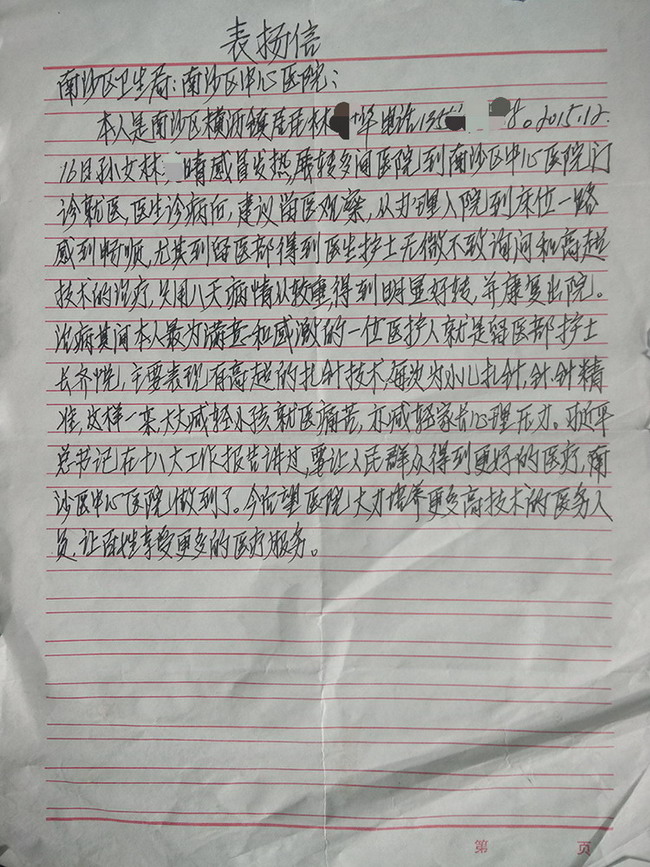 表扬信
南沙区卫生局:南沙区中心医院:
本人是南沙区横沥镇居民林华电话135 8。2015.12.
16日孙女林晴感冒发热,展转多间医院到南沙区中心医院门
诊就医,医生诊病后,建议留医观察,从办理入院到床位一路
感到畅顺,尤其到留医部得到医生护士无微不致询问和高超
技术的治疗,只用八天病情从致重得到明显好转,并康复出院。
治病其间本人最为满意和感激的一位医护人就是留医部护士
长齐悦,主要表现有高超的扎针技术,每次为小儿扎针,针针精
准,这样一来,大大减轻小孩就医痛苦,亦减轻家长心理压力。习近平
总书记在十八大工作报告讲过,要让人民群众得到更好的医疗,南
沙区中心医院做到了。今后望医院大力培养更多高技术的医务人
员,让百姓享受更多的医疗服务。
第 页